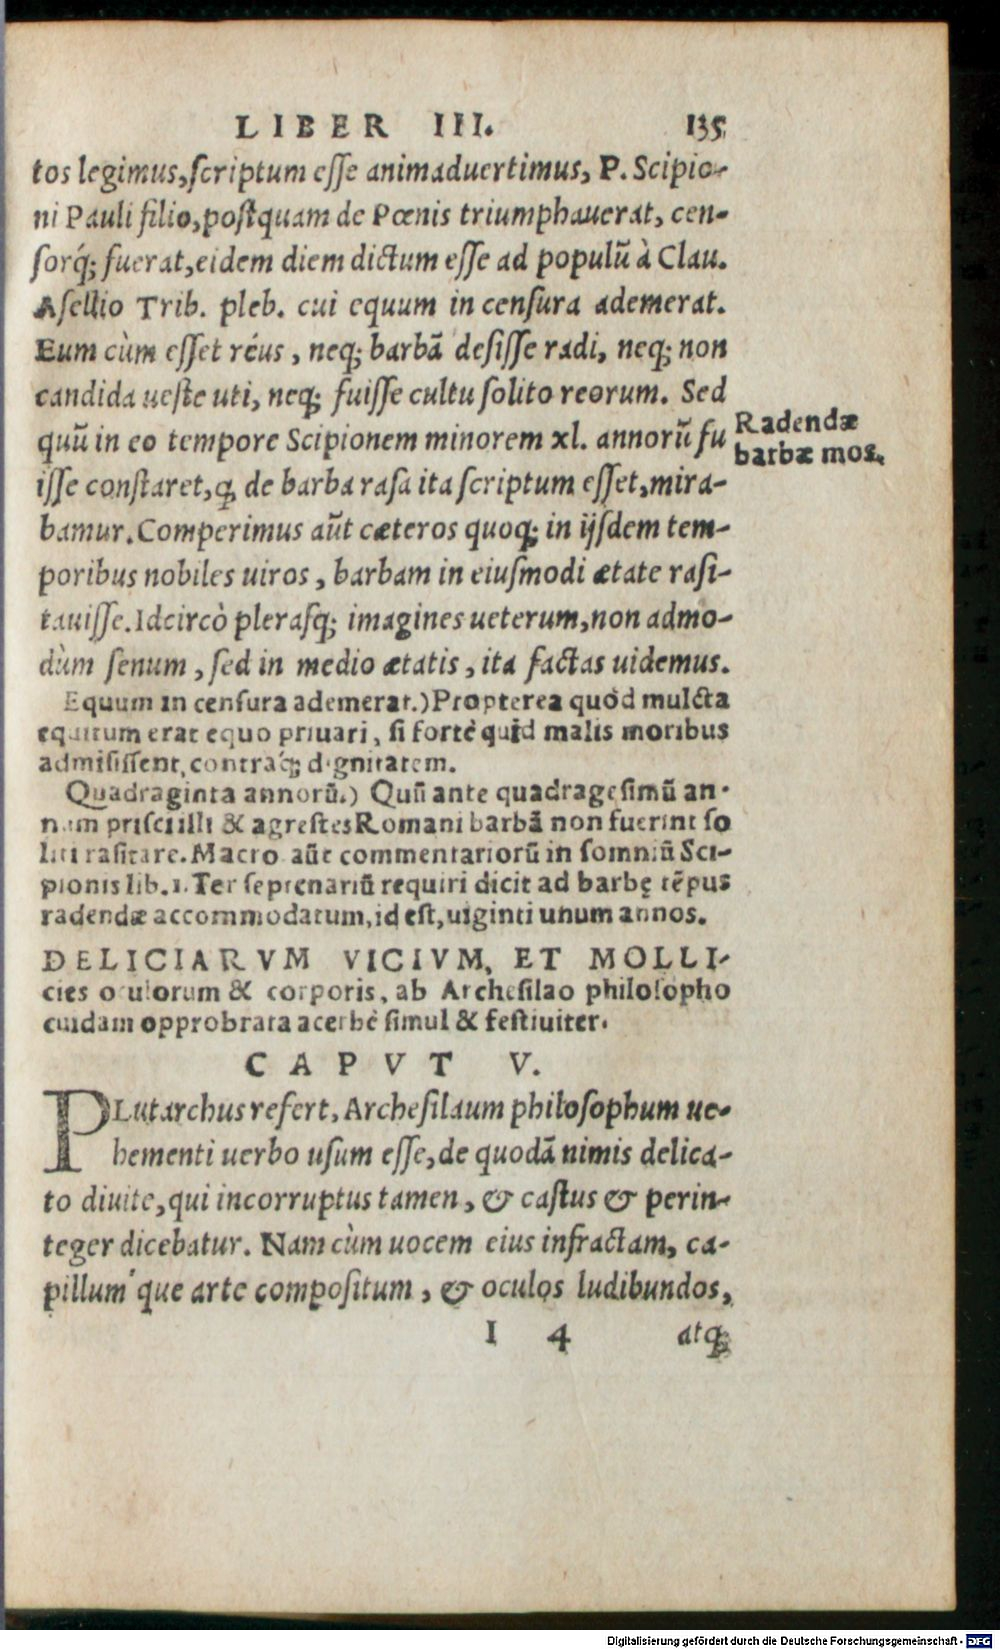 LIBER III. 135
tos legimus, scriptum esse animaduertimus, P. Scipio-
ni Pauli filio, postquam de Pœnis triumphauerat, cen-
sorq́; fuerat, eidem diem dictum esse ad populũ à Clau.
Asellio Trib. pleb. cui equum in censura ademerat.
Eum cùm esset réus, neq; barbã desisse radi, neq; non
candida ueste uti, neq; fuisse cultu solito reorum. Sed
quũ in eo tempore Scipionem minorem xl. annorũ fu
Radendæ
barbæ mos.
isse constaret, ꝙ de barba rasa ita scriptum esset, mira-
bamur. Comperimus aũt cæteros quoq; in ijsdem tem-
poribus nobiles uiros, barbam in eiusmodi ætate rasi-
tauisse. Idcircò plerasq; imagines ueterum, non admo-
dùm senum, sed in medio ætatis, ita factas uidemus.
Equum in censura ademerat.) Propterea quòd mulcta
equitum erat equo priuari, si fortè quid malis moribus
admisissent, contraq́; dignitatem.
Quadraginta annorũ.) Quũ ante quadragesimũ an-
num prisci illi & agrestes Romani barbã non fuerint so
liti rasitare. Macro. aũt commentariorũ in somniũ Sci-
pionis lib. 1. Ter septenariũ requiri dicit ad barbę tẽpus
radendæ accommodatum, id est, uiginti unum annos.
DELICIARVM VICIVM, ET MOLLI-
cies oculorum & corporis, ab Archesilao philosopho
cuidam opprobrata acerbè simul & festiuiter.
CAPVT V.
PLutarchus refert, Archesilaum philosophum ue-
hementi uerbo usum esse, de quodã nimis delica-
to diuite, qui incorruptus tamen, & castus & perin-
teger dicebatur. Nam cùm uocem eius infractam, ca-
pillum´que arte compositum, & oculos ludibundos,
I 4 atq;
Digitalisierung gefördert durch die Deutsche Forschungsgemeinschaft - DFG